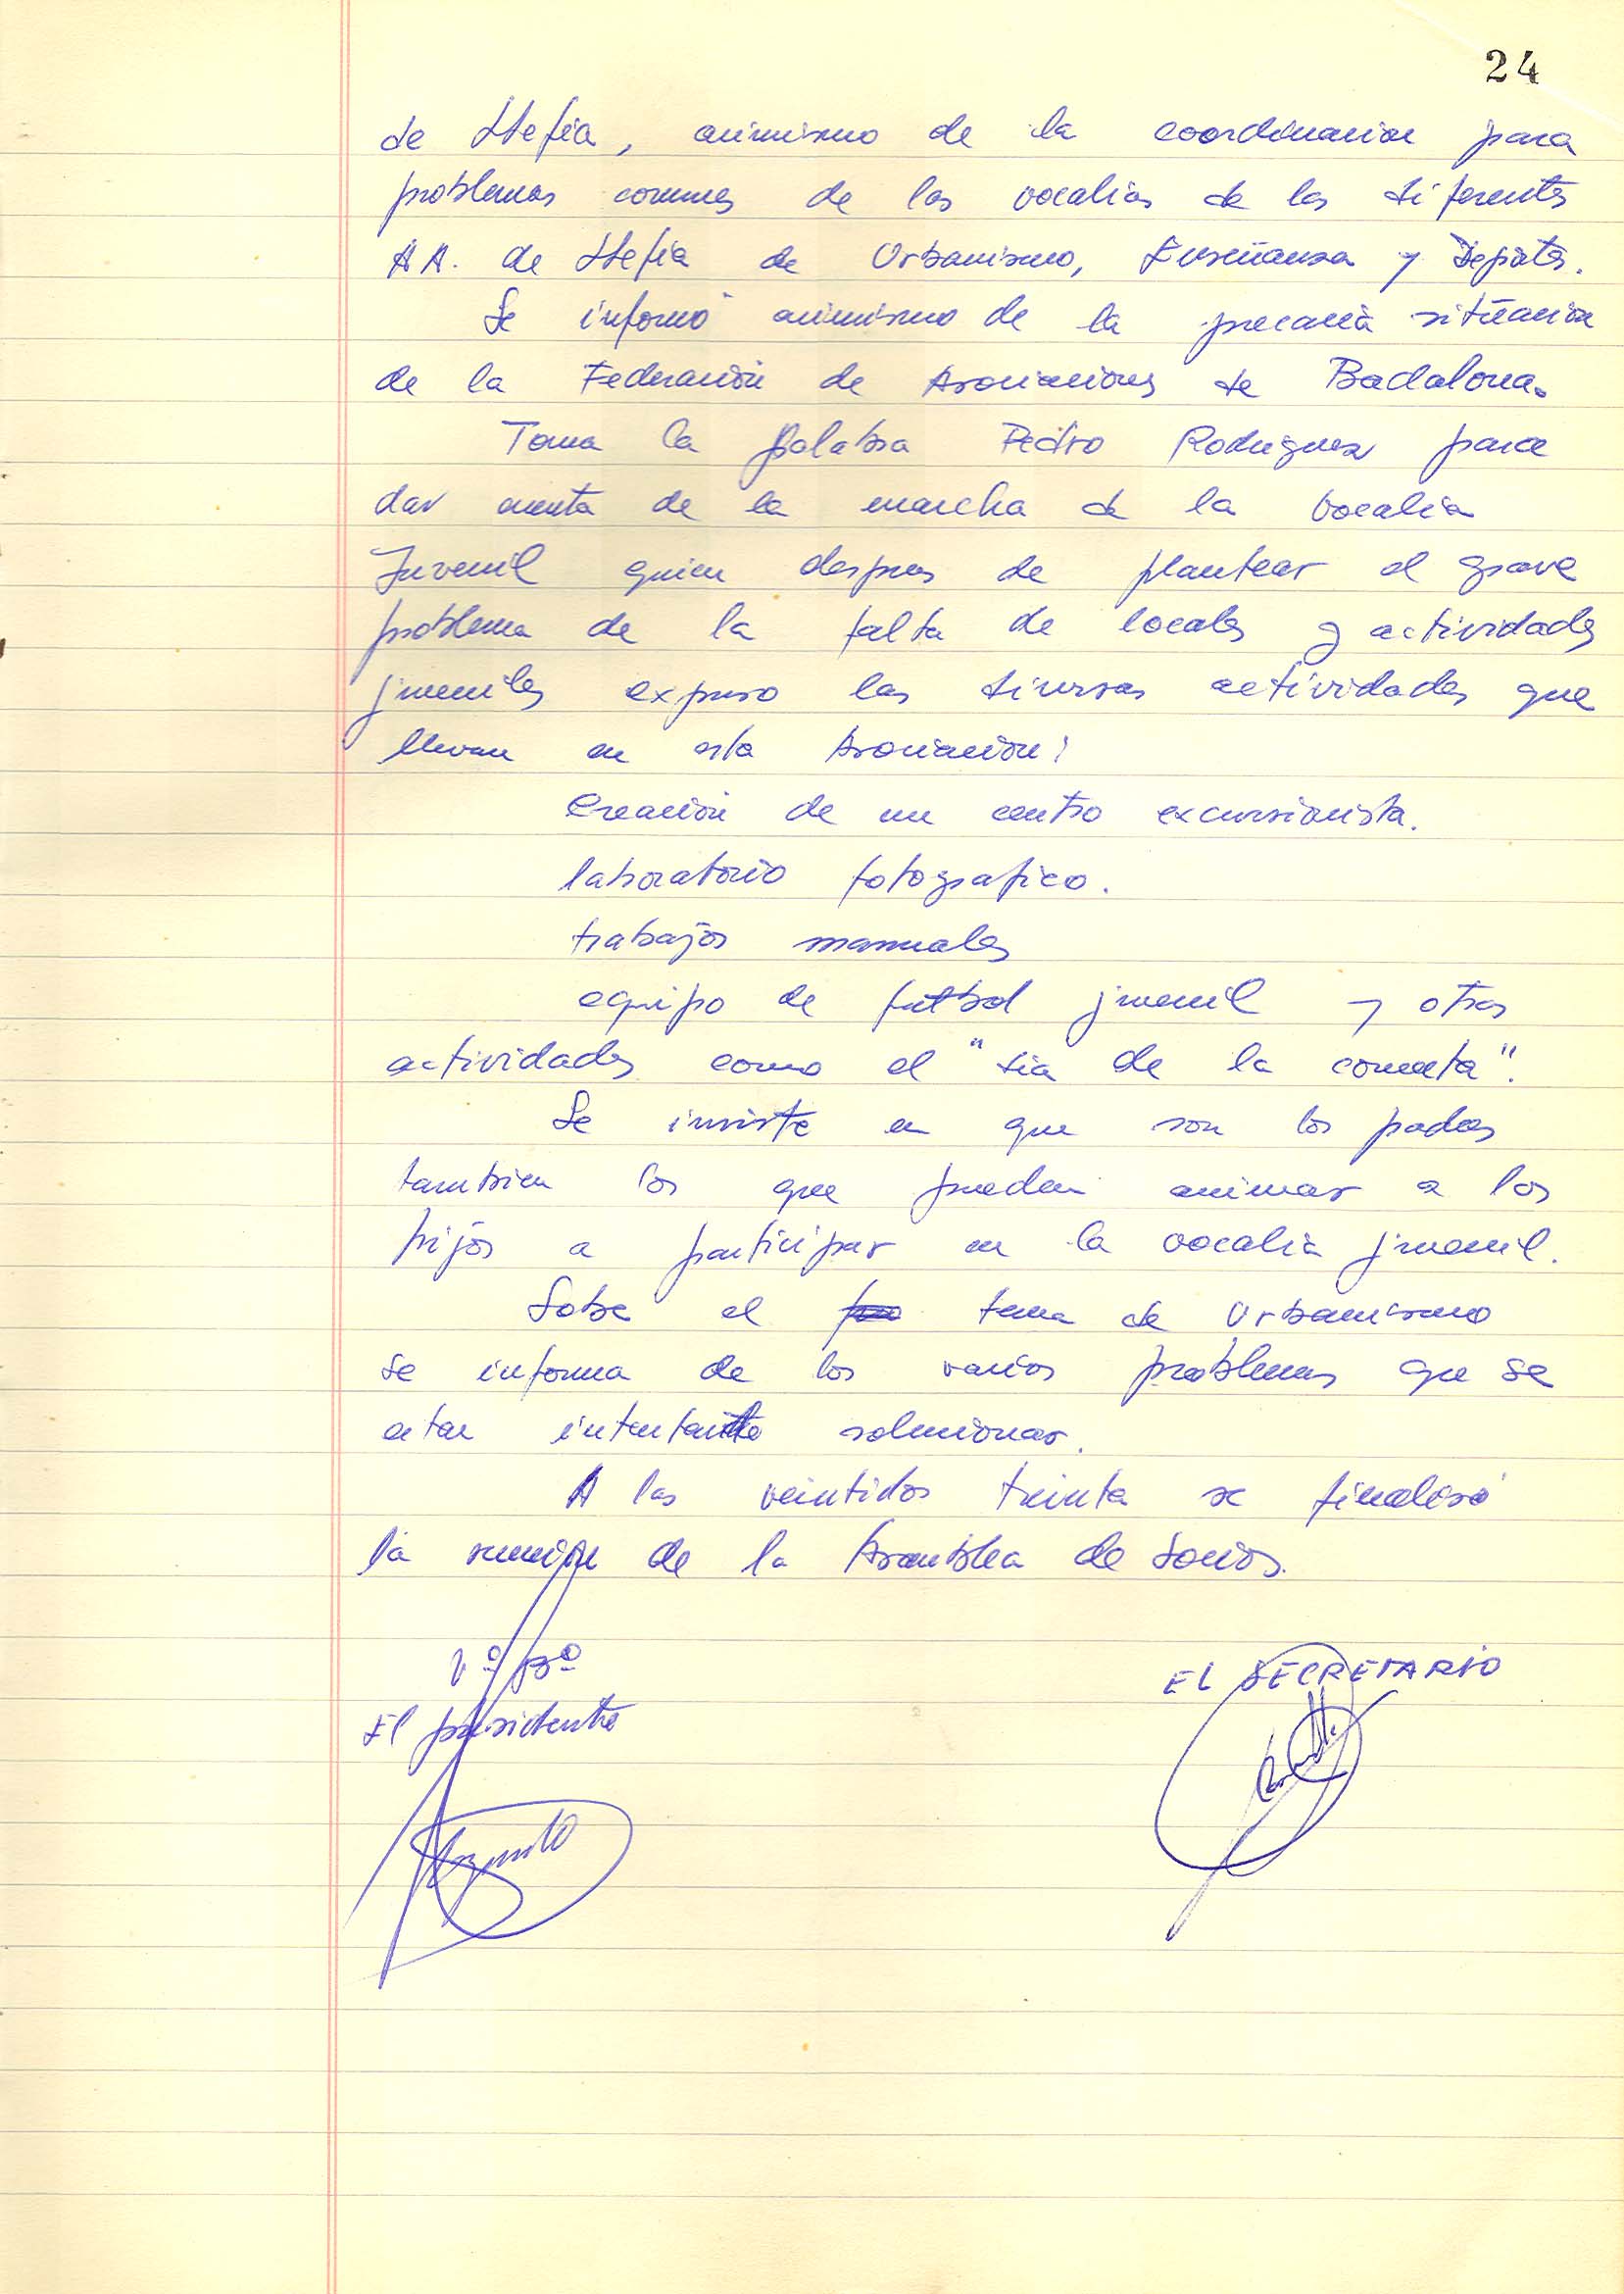 24
de Llefia, asimismo de la coordinacion para
problemas comunes de las vocalias de las diferentes
AA. de Llefia de Urbanismo, Enseñanza y Deportes.
Se informó asimismo de la precaria situacion
de la Federación de Asociaciones de Badalona.
Toma la palabra Pedro Rodriguez para
dar cuenta de la marcha de la vocalia
Juvenil quien despues de plantear el grave
problema de la falta de locales y actividades
juveniles expuso las diversas actividades que
llevan en esta Asociación:
Creación de un centro excursionista.
laboratorio fotografico.
trabajos manuales
equipo de futbol juvenil y otras
actividades como el "dia de la cometa".
Se insiste en que son los padres
tambien los que pueden animar a los
hijos a participar en la vocalia juvenil.
Sobre el tema de Urbanismo
se informa de los varios problemas que se
estan intentando solucionar.
A las veintidos treinta se finalizó
la reunión de la Asamblea de Socios.
Vº Bº
El presidente
EL SECRETARIO